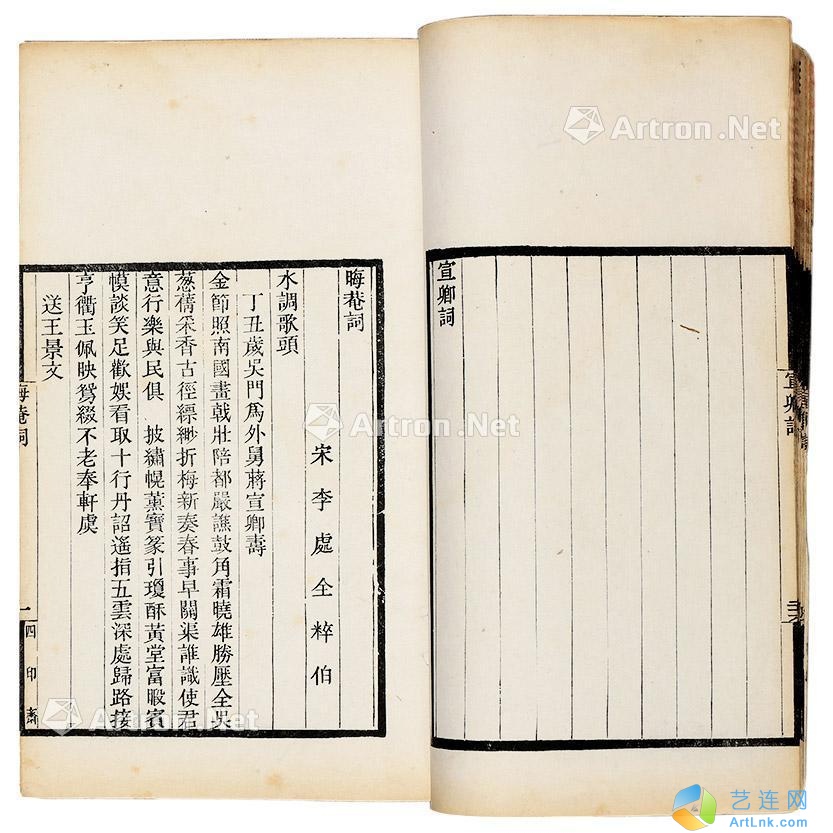 宣卿詞
宣卿詞
晦菴詞
宋李處全粹伯
水調歌頭
丁丑歲吳門爲外舅蔣宣卿壽
金節照南國畫戟壯陪都嚴譙鼓角霜曉雄勝壓全吳
葱蒨采香古徑縹緲折梅新奏春事早關渠誰識使君
意行樂與民俱 披繡幌薰寶篆引瓊酥黃堂富暇賓
幙談笑足歡娛看取十行丹詔遙指五雲深處歸路接
亨衢玉佩映鴛綴不老奉軒虞
送王景文
晦菴詞
一
四印齋
Artron.Net
Artron.Net
Artron.Net
艺连网
ArtLnk.com